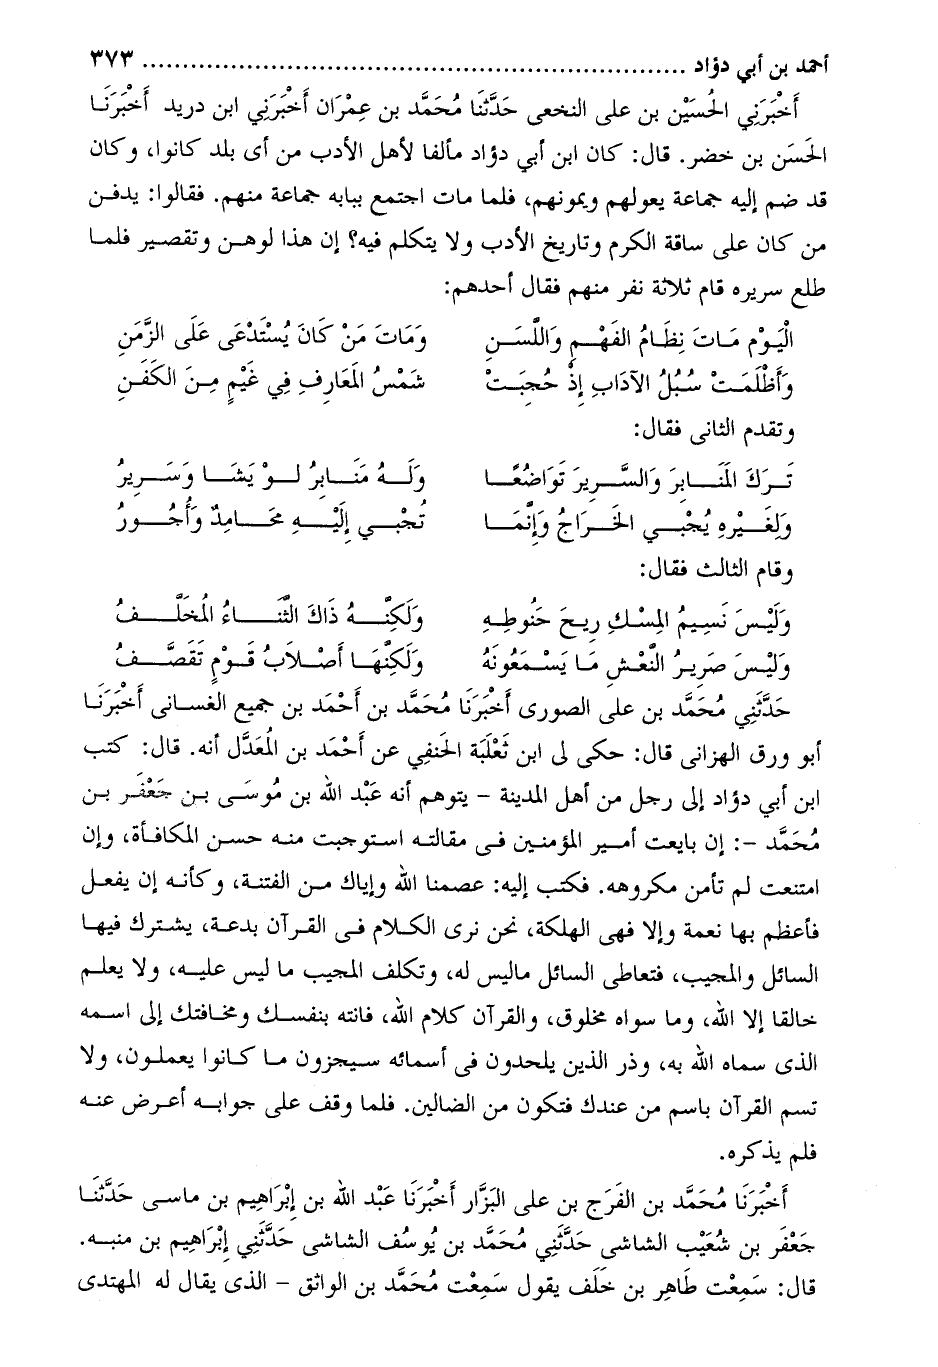 أحمد بن أبي دؤاد .................................................................... ٣٧٣
أَخْبَرَنِي الحُسَيْن بن على النخعى حَدَّثَنَا مُحَمَّد بن عِمْرَان أَخْبَرَنِي ابن دريد أَخْبَرَنَا
الحَسَن بن خضر. قال: كان ابن أبي دؤاد مألفا لأهل الأدب من أى بلد كانوا، وكان
قد ضم إليه جماعة يعولهم ويمونهم، فلما مات اجتمع ببابه جماعة منهم. فقالوا: يدفن
من كان على ساقة الكرم وتاريخ الأدب ولا يتكلم فيه؟ إن هذا لوهن وتقصير فلما
طلع سريره قام ثلاثة نفر منهم فقال أحدهم:
الْيَوْم مَاتَ نِظَامُ الفَهْمِ وَاللَّسَنِ وَمَاتَ مَنْ كَانَ يُسْتَدْعَى عَلَى الزَّمَنِ
وَأَظْلَمَتْ سُبُلُ الآدَابِ إِذْ حُجِبَتْ شَمْسُ المَعَارِفِ فِي غَيْمٍ مِنَ الكَفَنِ
وتقدم الثانى فقال:
تَرَكَ المَنَابِرَ وَالسَّرِيرَ تَوَاضُعًا وَلَهُ مَنَابِرُ لَوْ يَشَا وَسَرِيرُ
وَلِغَيْرِهِ يُجْبِي الخَرَاجُ وَإِنَّمَا تُجْبِي إِلَيْهِ مَحَامِدٌ وَأُجُورُ
وقام الثالث فقال:
وَلَيْسَ نَسِيمُ المِسْكِ رِيحَ حَنُوطِهِ وَلَكِنَّهُ ذَاكَ الثَّنَاءُ المُخَلَّفُ
وَلَيْسَ صَرِيرُ النَّعْشِ مَا يَسْمَعُونَهُ وَلَكِنَّهَا أَصْلَابُ قَوْمٍ تَقَصَّفُ
حَدَّثَنِي مُحَمَّد بن على الصورى أَخْبَرَنَا مُحَمَّد بن أَحْمَد بن جميع الغسانى أَخْبَرَنَا
أبو ورق الهزانى قال: حكى لى ابن ثَعْلَبَة الحَنفِي عن أَحْمَد بن المُعَدَّل أنه. قال: كتب
ابن أبي دؤاد إلى رجل من أهل المدينة - يتوهم أنه عَبْد الله بن مُوسَى بن جَعْفَر بن
مُحَمَّد -: إن بايعت أمير المؤمنين فى مقالته استوجبت منه حسن المكافأة، وإن
امتنعت لم تأمن مكروهه. فكتب إليه: عصمنا الله وإياك من الفتنة، وكأنه إن يفعل
فأعظم بها نعمة وإلا فهى الهلكة، نحن نرى الكلام فى القرآن بدعة، يشترك فيها
السائل والمجيب، فتعاطى السائل ماليس له، وتكلف المجيب ما ليس عليه، ولا يعلم
خالقا إلا الله، وما سواه مخلوق، والقرآن كلام الله، فانته بنفسك ومخافتك إلى اسمه
الذى سماه الله به، وذر الذين يلحدون فى أسمائه سيجزون ما كانوا يعملون، ولا
تسم القرآن باسم من عندك فتكون من الضالين. فلما وقف على جوابه أعرض عنه
فلم يذكره.
أَخْبَرَنَا مُحَمَّد بن الفَرَج بن على البَزَّار أَخْبَرَنَا عَبْد الله بن إِبْرَاهِيم بن ماسى حَدَّثَنَا
جَعْفَر بن شُعَيْب الشاشى حَدَّثَنِي مُحَمَّد بن يُوسُف الشاشى حَدَّثَنِي إِبْرَاهِيم بن منبه.
قال: سَمِعْت طَاهِر بن خَلَف يقول سَمِعْت مُحَمَّد بن الواثق - الذى يقال له المهتدى